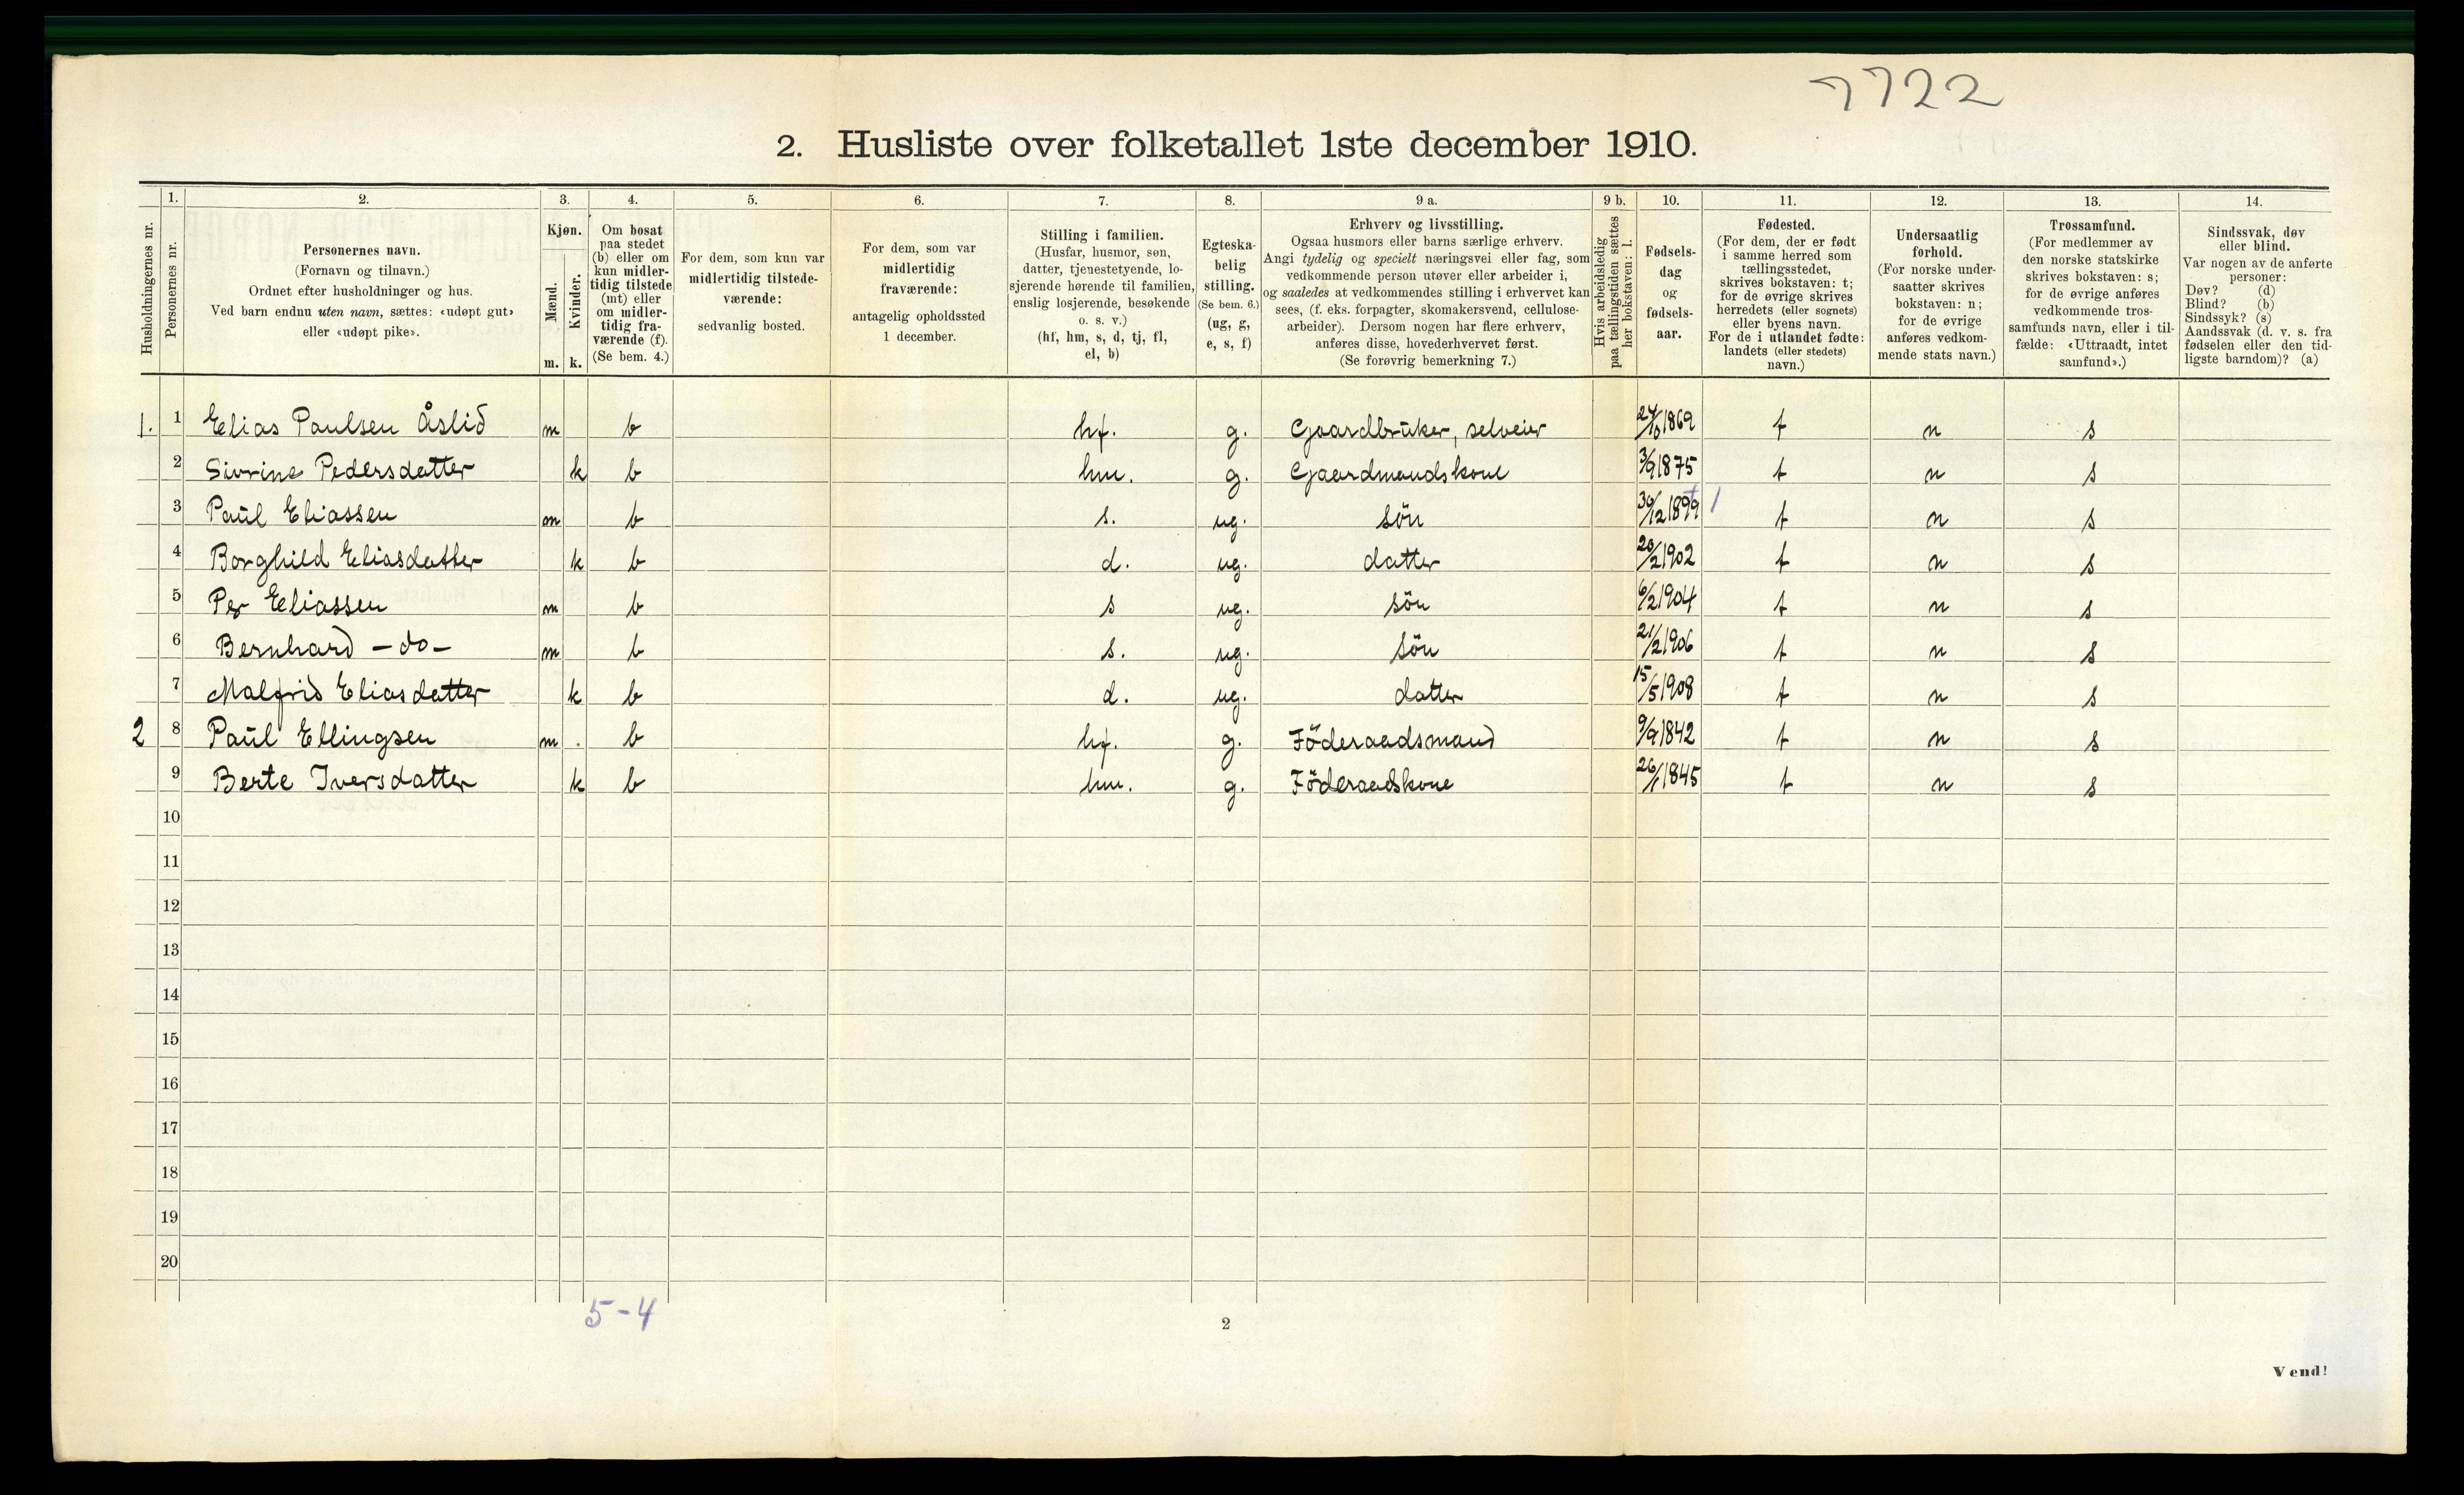 7722
2. Husliste over folketallet 1ste december 1910.
Husholdningernes nr.
1.
Personernes nr.
2.
Personernes navn.
(Fornavn og tilnavn.)
Ordnet efter husholdninger og hus.
Ved barn endnu uten navn, sættes: «udøpt gut»
eller «udøpt pike».
3.
Kjøn.
Mænd.
m.
Kvinder.
k.
4.
Om bosat
paa stedet
(b) eller om
kun midler-
tidig tilstede
(mt) eller
om midler-
tidig fra-
værende (f).
(Se bem. 4.)
5.
For dem, som kun var
midlertidig tilstede-
værende:
sedvanlig bosted.
6.
For dem, som var
midlertidig
fraværende:
antagelig opholdssted
1 december.
7.
Stilling i familien.
(Husfar, husmor, søn,
datter, tjenestetyende, lo-
sjerende hørende til familien,
enslig losjerende, besøkende
o. s. v.)
(hf, hm, s, d, tj, fl,
el, b)
8.
Egteska-
belig
stilling.
(Se bem. 6.)
(ug, g,
e, s, f)
9 a.
Erhverv og livsstilling.
Ogsaa husmors eller barns særlige erhverv.
Angi tydelig og specielt næringsvei eller fag, som
vedkommende person utøver eller arbeider i,
og saaledes at vedkommendes stilling i erhvervet kan
sees, (f. eks. forpagter, skomakersvend, cellulose-
arbeider). Dersom nogen har flere erhverv,
anføres disse, hovederhvervet først.
(Se forøvrig bemerkning 7.)
9 b.
Hvis arbeidsledig
paa tællingstiden sættes
her bokstaven: l.
10.
Fødsels-
dag
og
fødsels-
aar.
11.
Fødested.
(For dem, der er født
i samme herred som
tællingsstedet,
skrives bokstaven: t;
for de øvrige skrives
herredets (eller sognets)
eller byens navn.
For de i utlandet fødte:
landets (eller stedets)
navn.)
12.
Undersaatlig
forhold.
(For norske under-
saatter skrives
bokstaven: n;
for de øvrige
anføres vedkom-
mende stats navn.)
13.
Trossamfund.
(For medlemmer av
den norske statskirke
skrives bokstaven: s;
for de øvrige anføres
vedkommende tros-
samfunds navn, eller i til-
fælde: «Uttraadt, intet
samfund».)
14.
Sindssvak, døv
eller blind.
Var nogen av de anførte
personer:
Døv? (d)
Blind? (b)
Sindssyk? (s)
Aandssvak (d. v. s. fra
fødselen eller den tid-
ligste barndom)? (a)
1. 1 Elias Paulsen Åslid m b hf. g. Gaardbruker, selveier 24/10 1869 t n s
2 Sivrine Pedersdatter k b hm. g. Gaardmandskone 3/9 1875 t n s
3 Paul Eliassen m b s. ug. sön 30/12 1899 1 t n s
4 Borghild Eliasdatter k b d. ug. datter 20/2 1902 t n s
5 Per Eliassen m b s ug. sön 6/2 1904 t n s
6 Bernhard -do- m b s. ug. sön 21/2 1906 t n s
7 Malfrid Eliasdatter k b d. ug. datter 15/5 1908 t n s
2 8 Paul Ellingsen m b hf. g. Föderaadsmand 9/9 1842 t n s
9 Berte Iversdatter k b hm. g. Föderaadskone 26/1 1845 t n s
10
11
12
13
14
15
16
17
18
19
20
5-4
2
Vend!